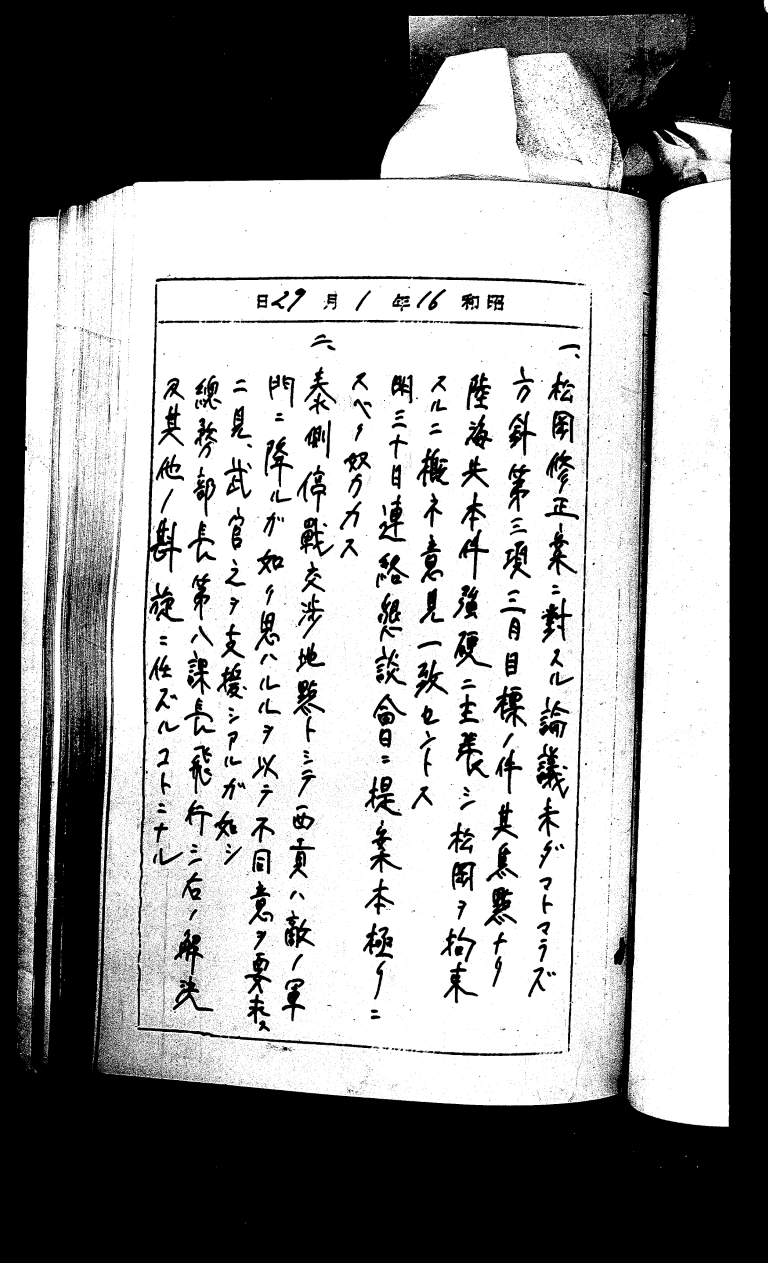 昭和16年1月29日
一、松岡修正案ニ對スル論議未ダマトマラズ
方針第三項三月目標ノ件其焦點ナリ
陸海共本件強硬ニ主張シ松岡ヲ拘束
スルニ概ネ意見一致セントス
明三十日連絡懇談會ニ提案本極リニ
スベク努力ス
二、泰側停戰交渉地點トシテ西貢ハ敵ノ軍
門ニ降ルガ如ク思ハルルヲ以テ不同意ヲ要求ス
二見、武官之ヲ支援シアルガ如シ
總務部長第八課長飛行シ右ノ解決
及其他ノ斟旋ニ任ズルコトニナル